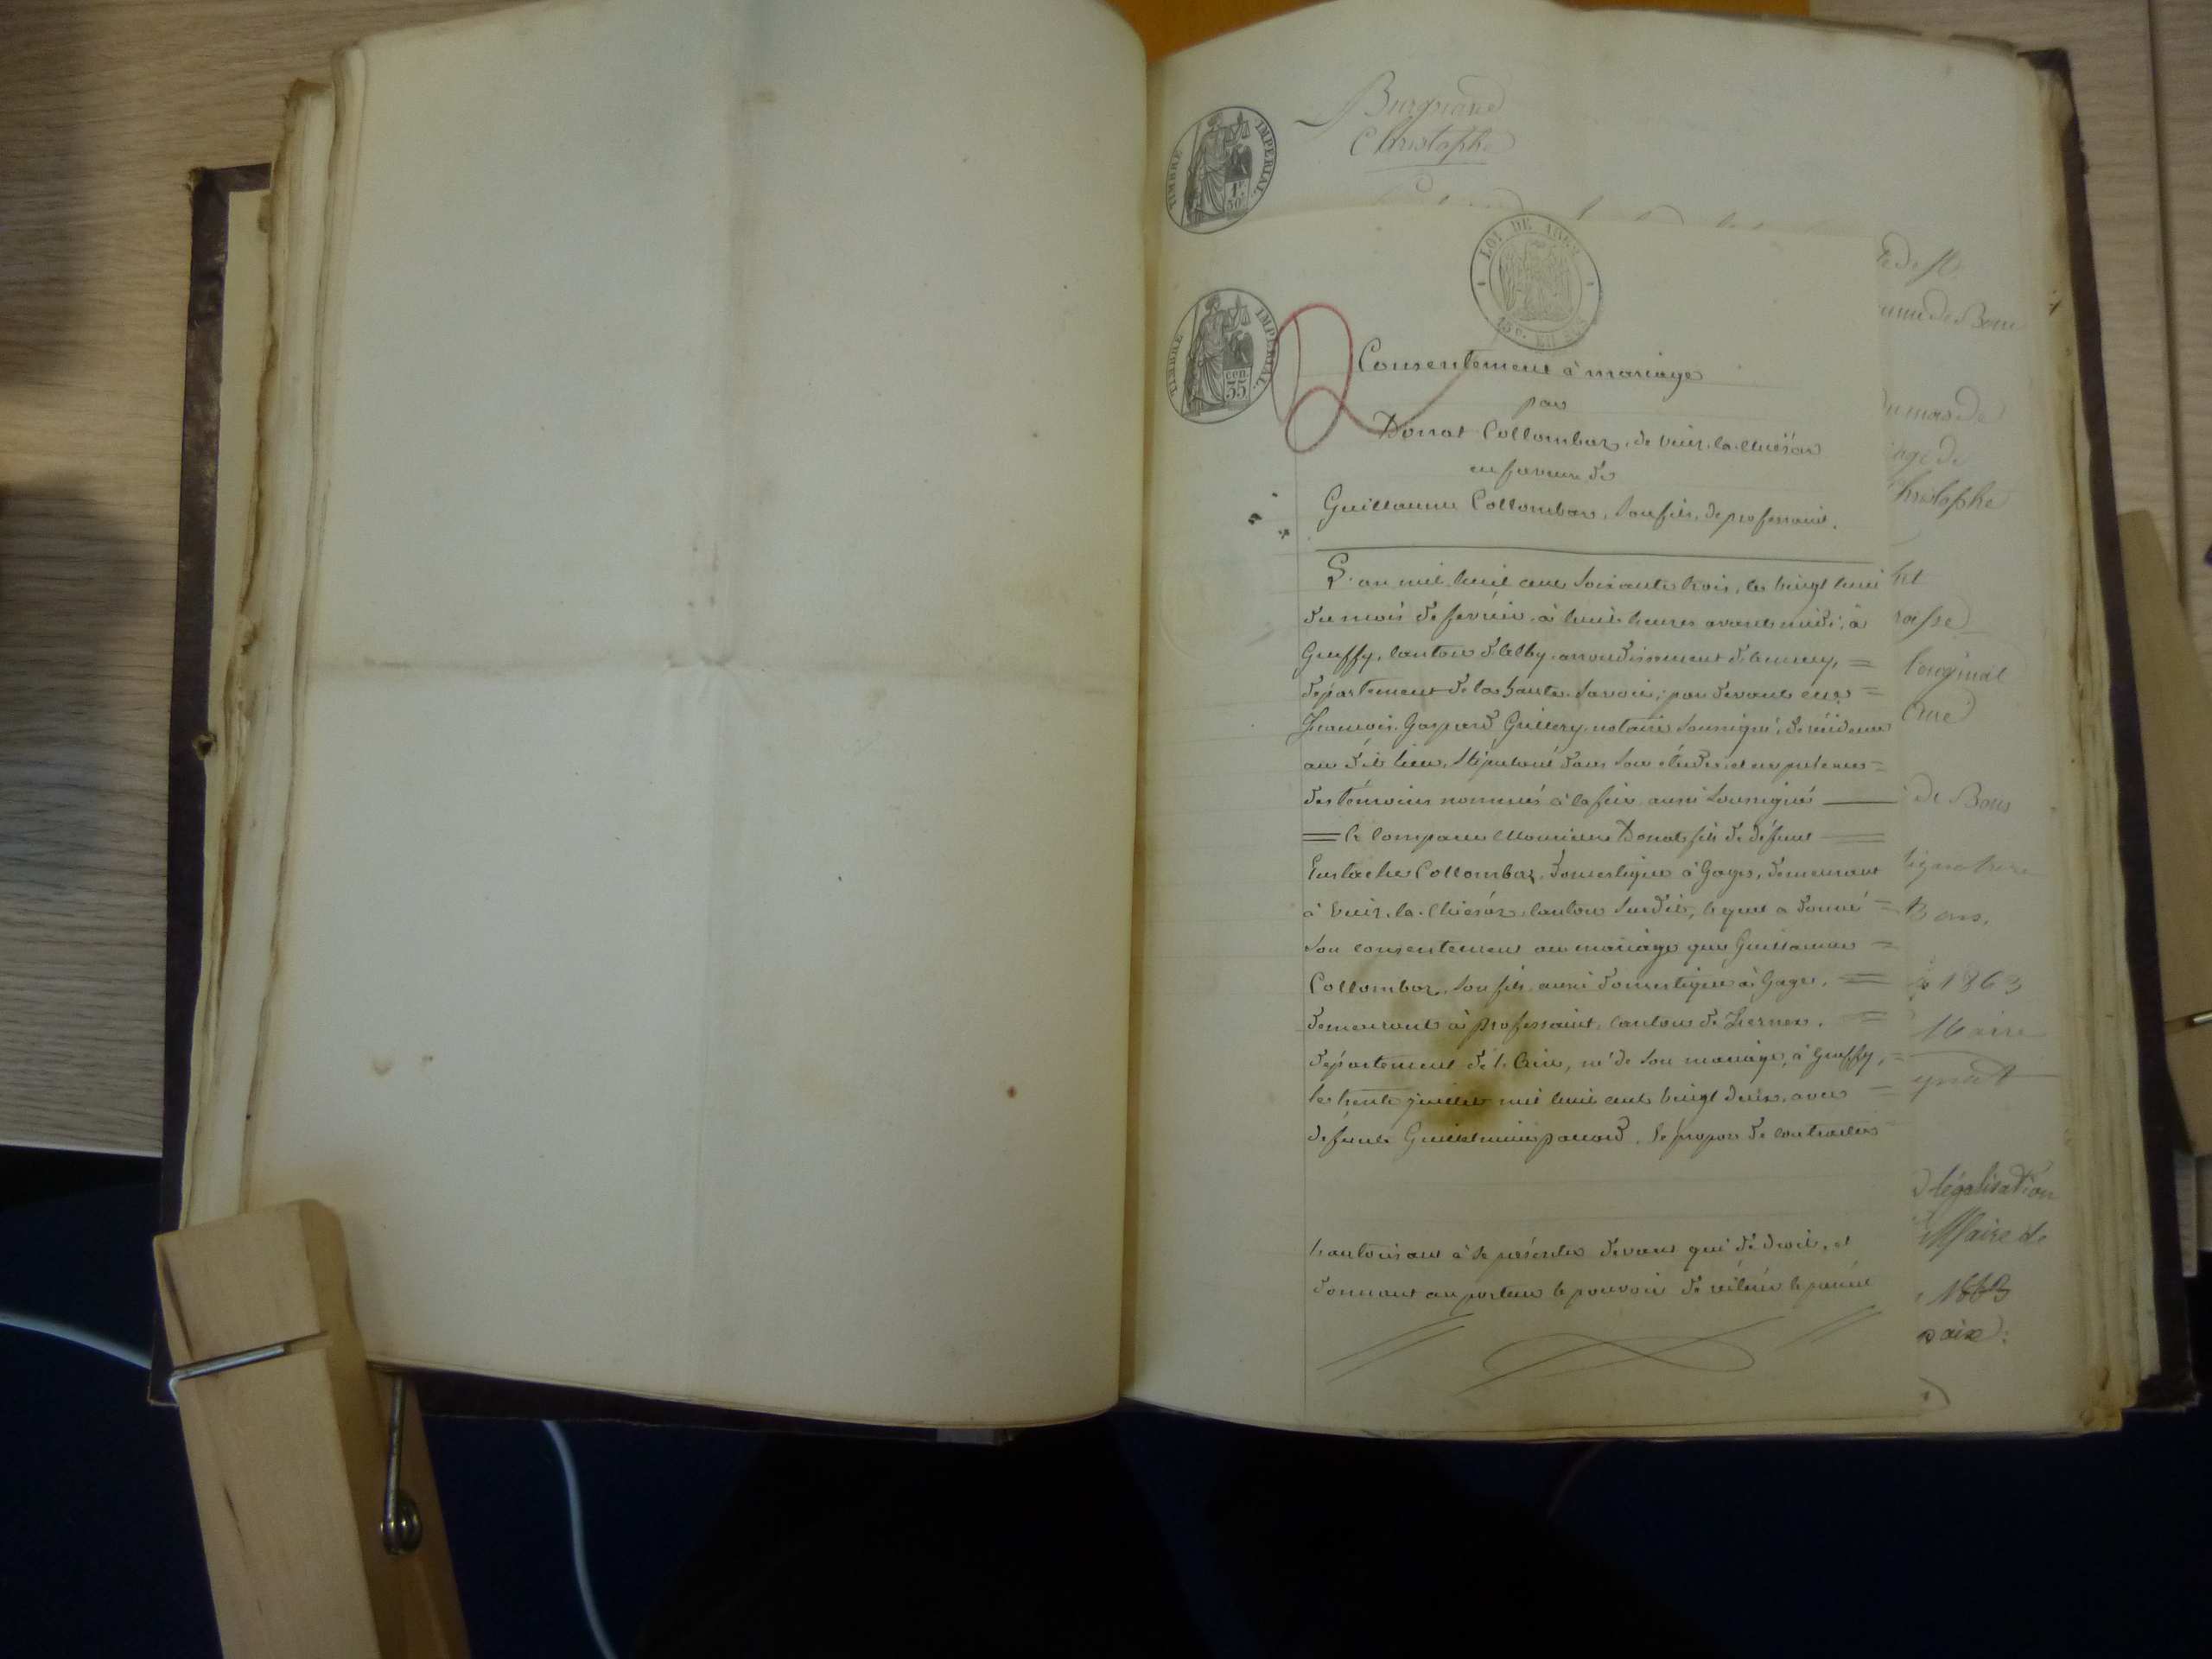 Burgniard
Christophe
TIMBRE IMPERIAL
1F 50C
LOI DE 1862
15 c. EN SUS
TIMBRE IMPERIAL
55 cen
Consentement à mariage
par
Donat Collombaz, de
en faveur de
Guillaume Collombaz, son fils, de professaint.
L'an mil huit cent soixante trois, le vingt huit
du mois de fevrier, à huit heures avant midi, à
Gruffy, canton d'Alby, arrondissement d'Annecy,
département de la haute-Savoie; par devant
François Gaspard notaire soussigné, de résidence
au dit lieu, stipulant dans son étude, et en présence
des témoins nommés à la fin aussi soussigné
à comparu Donat fils de défunt
Eustache Collombaz, domestique à Gages, demeurant
à canton susdit, lequel a donné
son consentement au mariage que Guillaume
Collombaz, son fils aussi domestique à Gages,
demeurant à professaint, canton de Fernex,
département de l'Ain, né de son mariage, à Gruffy,
le trente juillet mil huit cent vingt deux, avec
défunte se propose de contracter
l'autorisant à se présenter devant qui de droit, et
donnant au porteur le pouvoir de réitérer le présent
de Bons
mas de
age de
Christophe
l'original
Curé
de Bons
signature
Bons.
1863
Maire
légalisation
Maire de
1863
paix